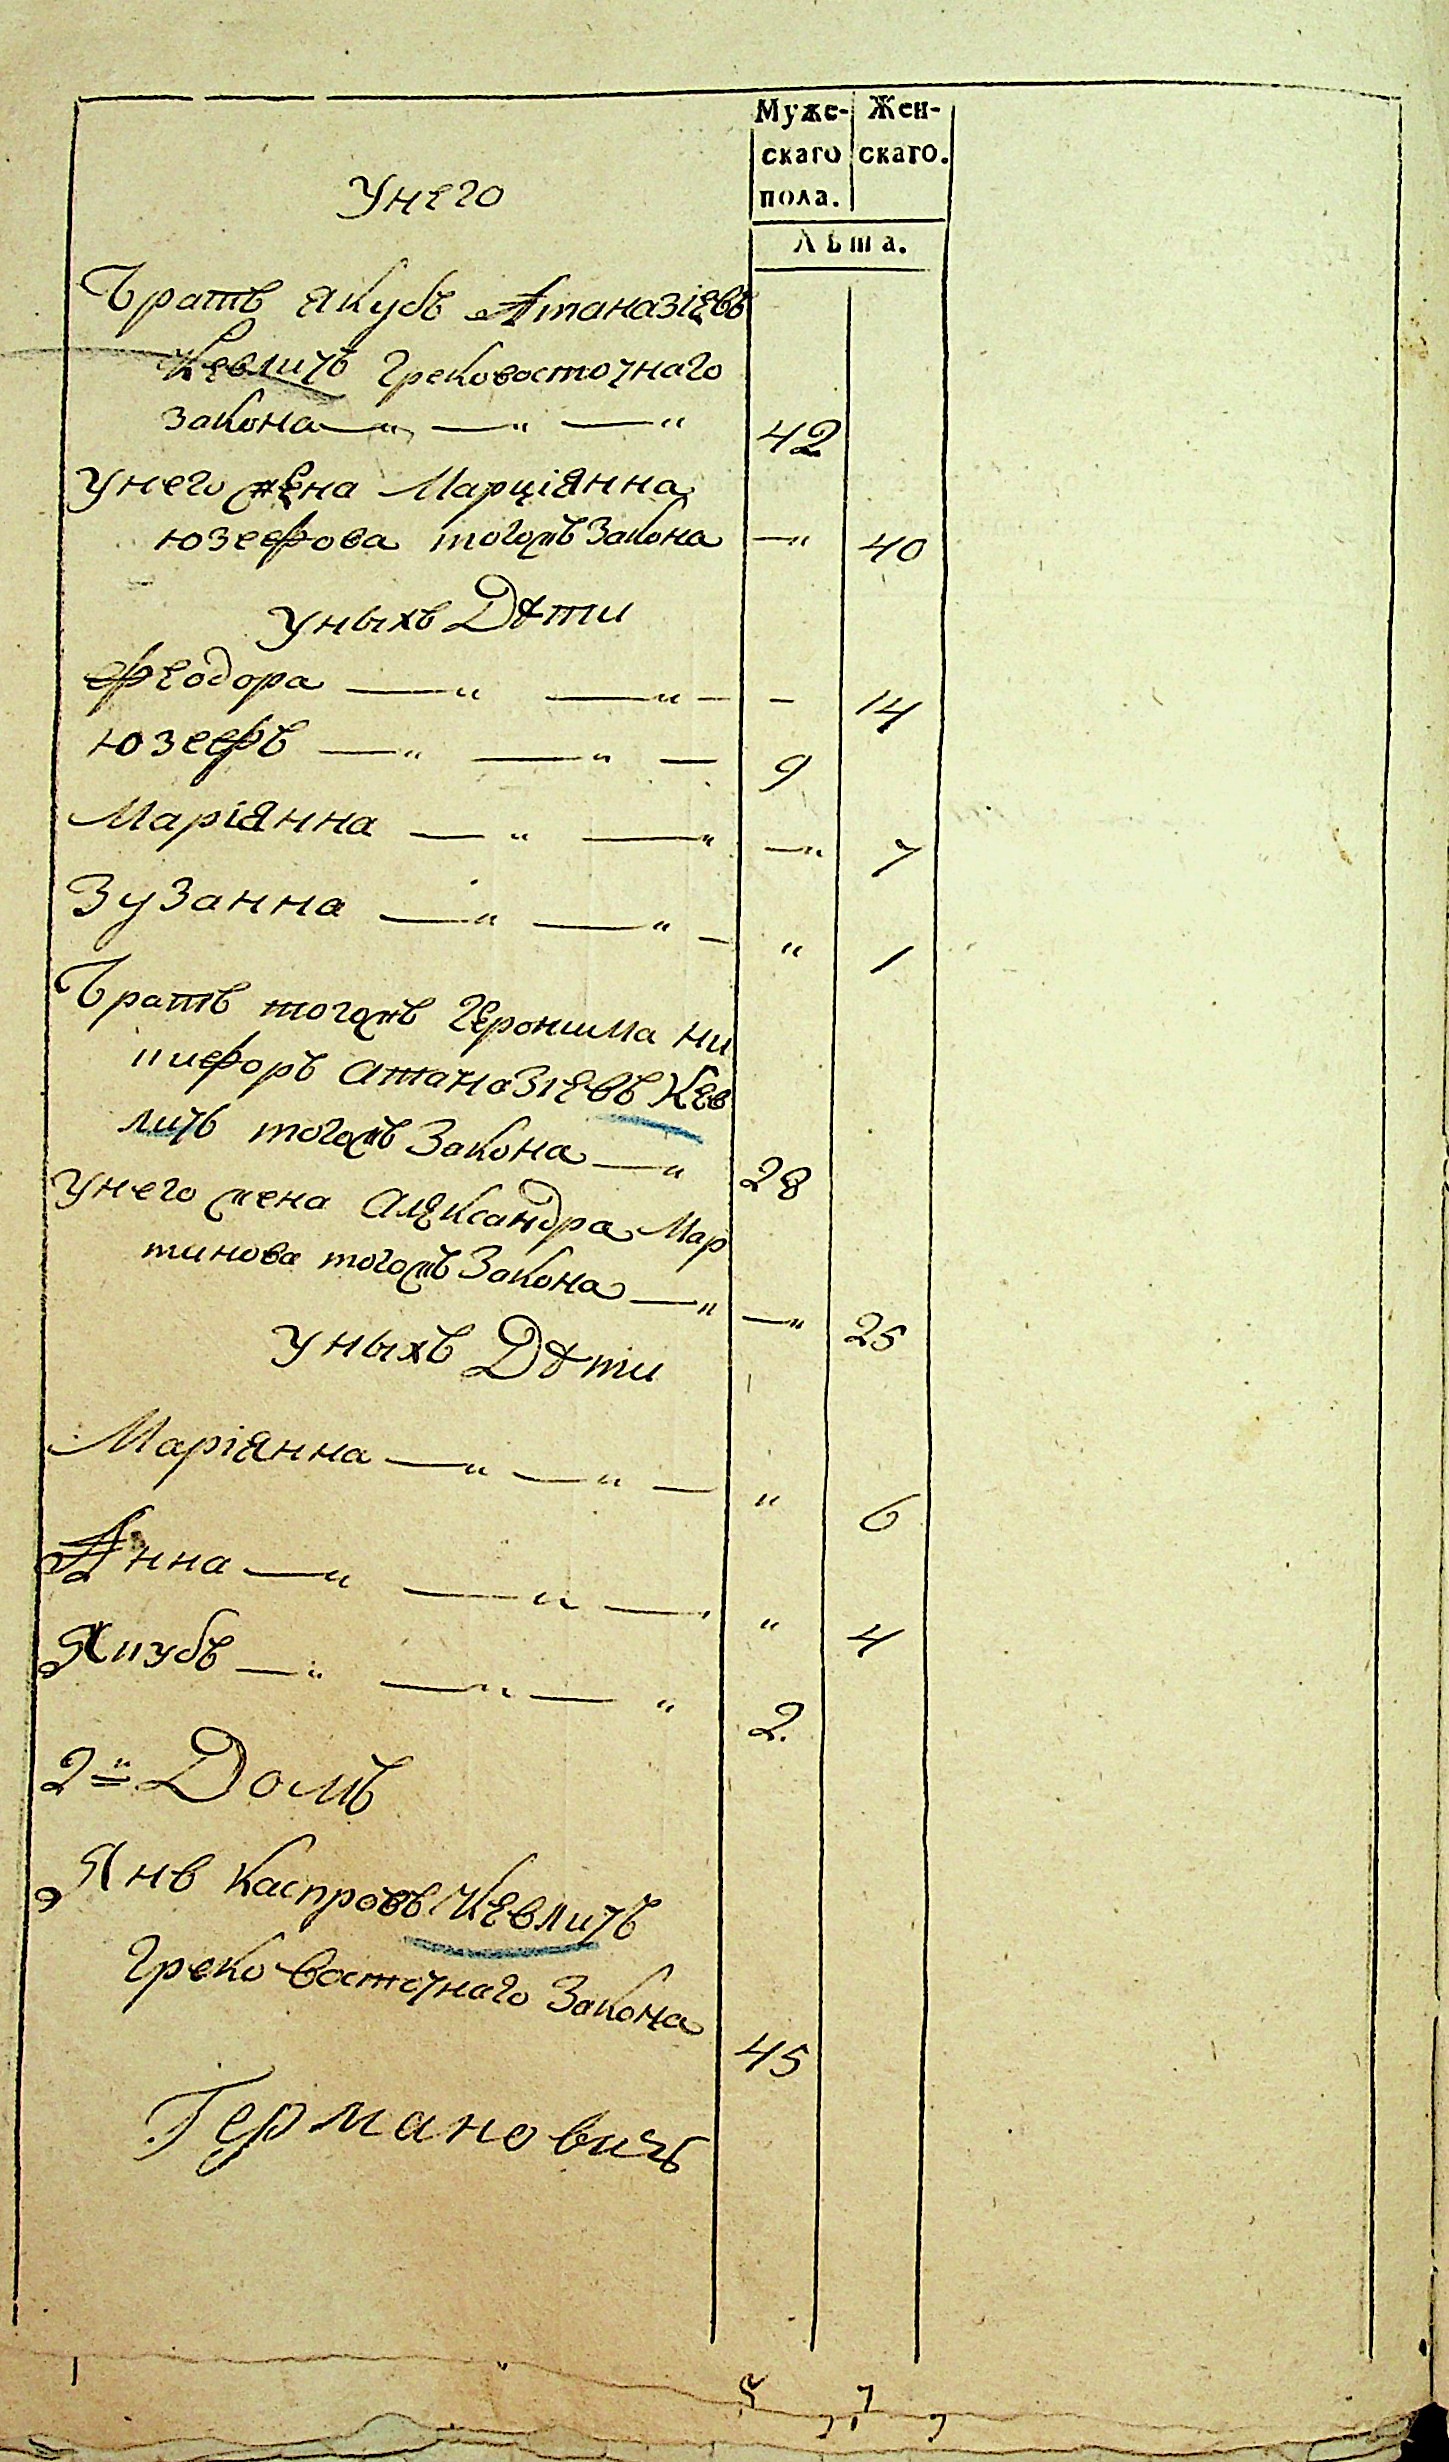 Муже- Жен-
скаго скаго.
пола.
Лѣта.
Унего
Братъ Якубъ Атаназіевъ
Кевличъ Грековосточнаго
Закона —„ —„ —„ 42
Унего жена Марціянна
Юзефова тогожъ Закона —„ 40
Уныхъ Дѣти
Феодора —„ —„ — — 14
Юзефъ —„ —„ — 9
Маріянна —„ —„ —„ 7
Зузанна —„ —„ — „ 1
Братъ тогожъ Геронима Ни
кифоръ Атаназіевъ Кев
личъ тогожъ Закона —„ 28
Унего жена Александра Мар
тинова тогожъ Закона —„ —„ 25
Уныхъ Дѣти
Маріянна —„ —„ — „ 6
Анна —„ —„ — „ 4
Якубъ —„ —„ — „ 2.
2й Домъ
Янъ Каспровъ Кевличъ
Греко Восточнаго Закона 45
Германовичъ
5 7